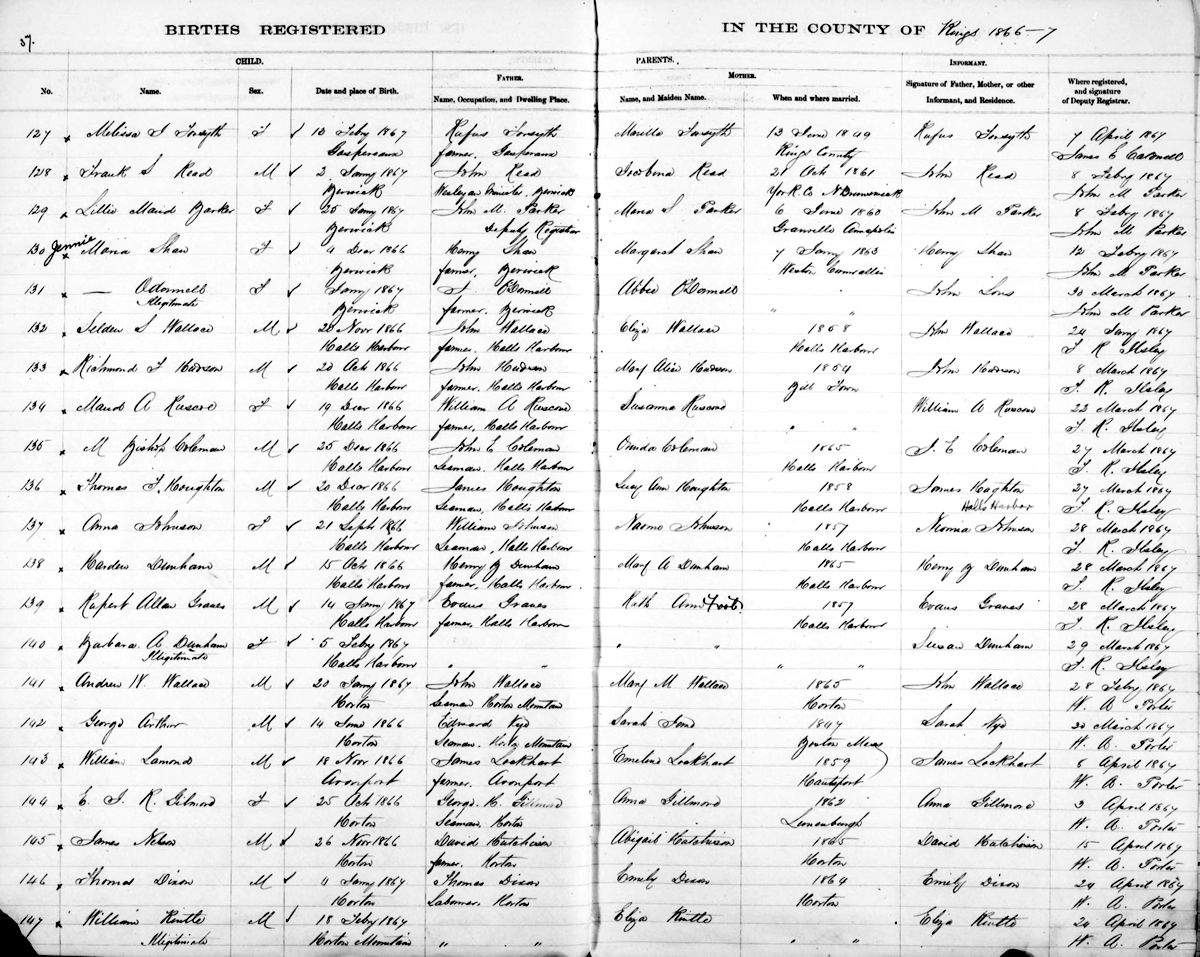 57.
BIRTHS REGISTERED IN THE COUNTY OF Kings 1866-7
CHILD. PARENTS.
FATHER. MOTHER. INFORMANT.
No. Name. Sex. Date and place of Birth. Name, Occupation, and Dwelling Place. Name, and Maiden Name. When and where married. Signature of Father, Mother, or other Informant, and Residence. Where registered, and signature of Deputy Registrar.
127 Melissa J Forsyth F 12 Feby 1867 Rufus Forsyth Forsyth 13 June 1849 Rufus Forsyth 7 April 1867
Gaspereaux farmer, Gaspereaux Kings County James E
128 Frank S Read M 2 Jany 1867 John Read Read 21 Oct 1861 John Read 8 Febry 1867
Berwick Wesleyan Minister, Berwick York Co N Brunswick John M Parker
129 Lillie Maud Parker F 25 Jany 1867 John M. Parker Maria S Parker 6 June 1860 John M Parker 8 Febry 1867
Berwick Deputy Registrar Granville Annapolis John M Parker
130 Jennie Maria Shaw F 9 Decr 1866 Henry Shaw Margaret Shaw 7 Jany 1863 Henry Shaw 12 Febry 1867
Berwick farmer, Berwick Weston Cornwallis John M Parker
131 — Odonnell F Jany 1867 J. O'Donnell Abbie O'Donnell John 30 March 1867
Illegitimate Berwick farmer, Berwick " " John M Parker
132 Selden S Wallace M 20 Novr 1866 John Wallace Eliza Wallace 1858 John Wallace 24 Jany 1867
Halls Harbour farmer. Halls Harbour Halls Harbour T R Ilsley
133 Richmond F Hudson M 20 Oct 1866 John Hudson Mary Alice Hudson 1854 John Hudson 8 March 1867
Halls Harbour farmer. Halls Harbour Gill Town T. R. Ilsley
134 Maud A Ruscoe F 19 Decr 1866 William A Ruscoe Susanna Ruscoe William A Ruscoe 22 March 1867
Halls Harbour farmer, Halls Harbour " " T. R. Ilsley
135 M Bishop Coleman M 25 Decr 1866 John E Coleman Coleman 1865 J. E Coleman 27 March 1867
Halls Harbour Seaman. Halls Harbour Halls Harbour T. R. Ilsley
136 Thomas F. Houghton M 20 Decr 1866 James Houghton Lucy Ann Houghton 1858 James Hoghton 27 March 1867
Halls Harbour Seaman, Halls Harbour Halls Harbour Halls Harbor T. R. Ilsley
137 Anna Johnson F 21 Sept 1866 William Johnson Naomo Johnson 1857 Neomia Johnson 28 March 1867
Halls Harbour Seaman, Halls Harbour Halls Harbour T. R. Ilsley
138 Harden Dunham M 15 Oct 1866 Henry Y Dunham Mary A Dunham 1865 Henry Y Dunham 28 March 1867
Halls Harbour farmer, Halls Harbour. Halls Harbour T. R. Ilsley
139 Rupert Allan Graves M 14 Jany 1867 Evans Graves Ruth Ann Foot. 1857 Evans Graves 28 March 1867
Halls Harbour farmer, Halls Harbour Halls Harbour T. R. Ilsley
140 Barbara A Dunham F 5 Feby 1867 " " Susan Dunham 29 March 1867
Illegitimate Halls Harbour " " " " T. R. Ilsley
141 Andrew W. Wallace M 20 Jany 1867 John Wallace Mary M Wallace 1865 John Wallace 28 Feby 1867
Horton Seaman Horton Mountain Horton W. A. Porter
142 George Arthur M 14 June 1866 Edward Nye Sarah Ann 1847 Sarah Nye 30 March 1867
Horton Seaman. Horton Mountain Boston Mass W. A. Porter
143 William Lamond M 18 Novr 1866 James Lockhart Emeline Lockhart 1859 James Lockhart 8 April 1867
Avonport farmer. Avonport Hantsport W. A. Porter
144 E. J. R. Gilmord F 25 Oct 1866 George H. Gillmord Anna Gillmord 1862 Anna Gillmord 3 April 1867
Horton Seaman. Horton Lunenburgh W. A. Porter
145 James Nelson M 26 Nov 1866 David Hutchison Abigail Hutchison 1865 David Hutchison 15 April 1867
Horton farmer. Horton Horton W. A. Porter
146 Thomas Dixon M 11 Jany 1867 Thomas Dixon Emely Dixon 1864 Emely Dixon 24 April 1867
Horton Labourer. Horton Horton W. A. Porter
147 William Kintle M 18 Feby 1867 Eliza Kintle Eliza Kintle 24 April 1867
Illegitimate Horton Mountain " " " " W. A. Porter